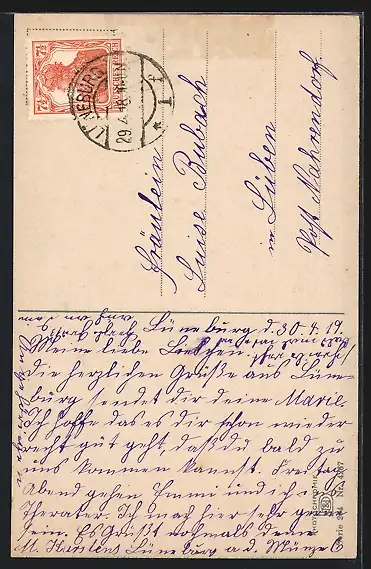 7½ 7½
DEUTSCHES REICH
LÜNEBURG
29.4.18
Fräulein
Luise Bubach
in Lüben
Post Nahrendorf
Lüneburg d. 30.4.19.
Meine liebe Lieschen.
die herzlichen Grüße aus Lüne=
burg sendet dir deine Marie.
Ich hoffe das es dir schon wieder
recht gut geht, daß du bald zu
uns kommen kannst. Freitag
Abend gehen Emmi und ich ins
Theater. Ich mag hier sehr gerne
sein. Es Grüßt nochmals deine
M. Lüneburg a. d. Münze 6
Serie